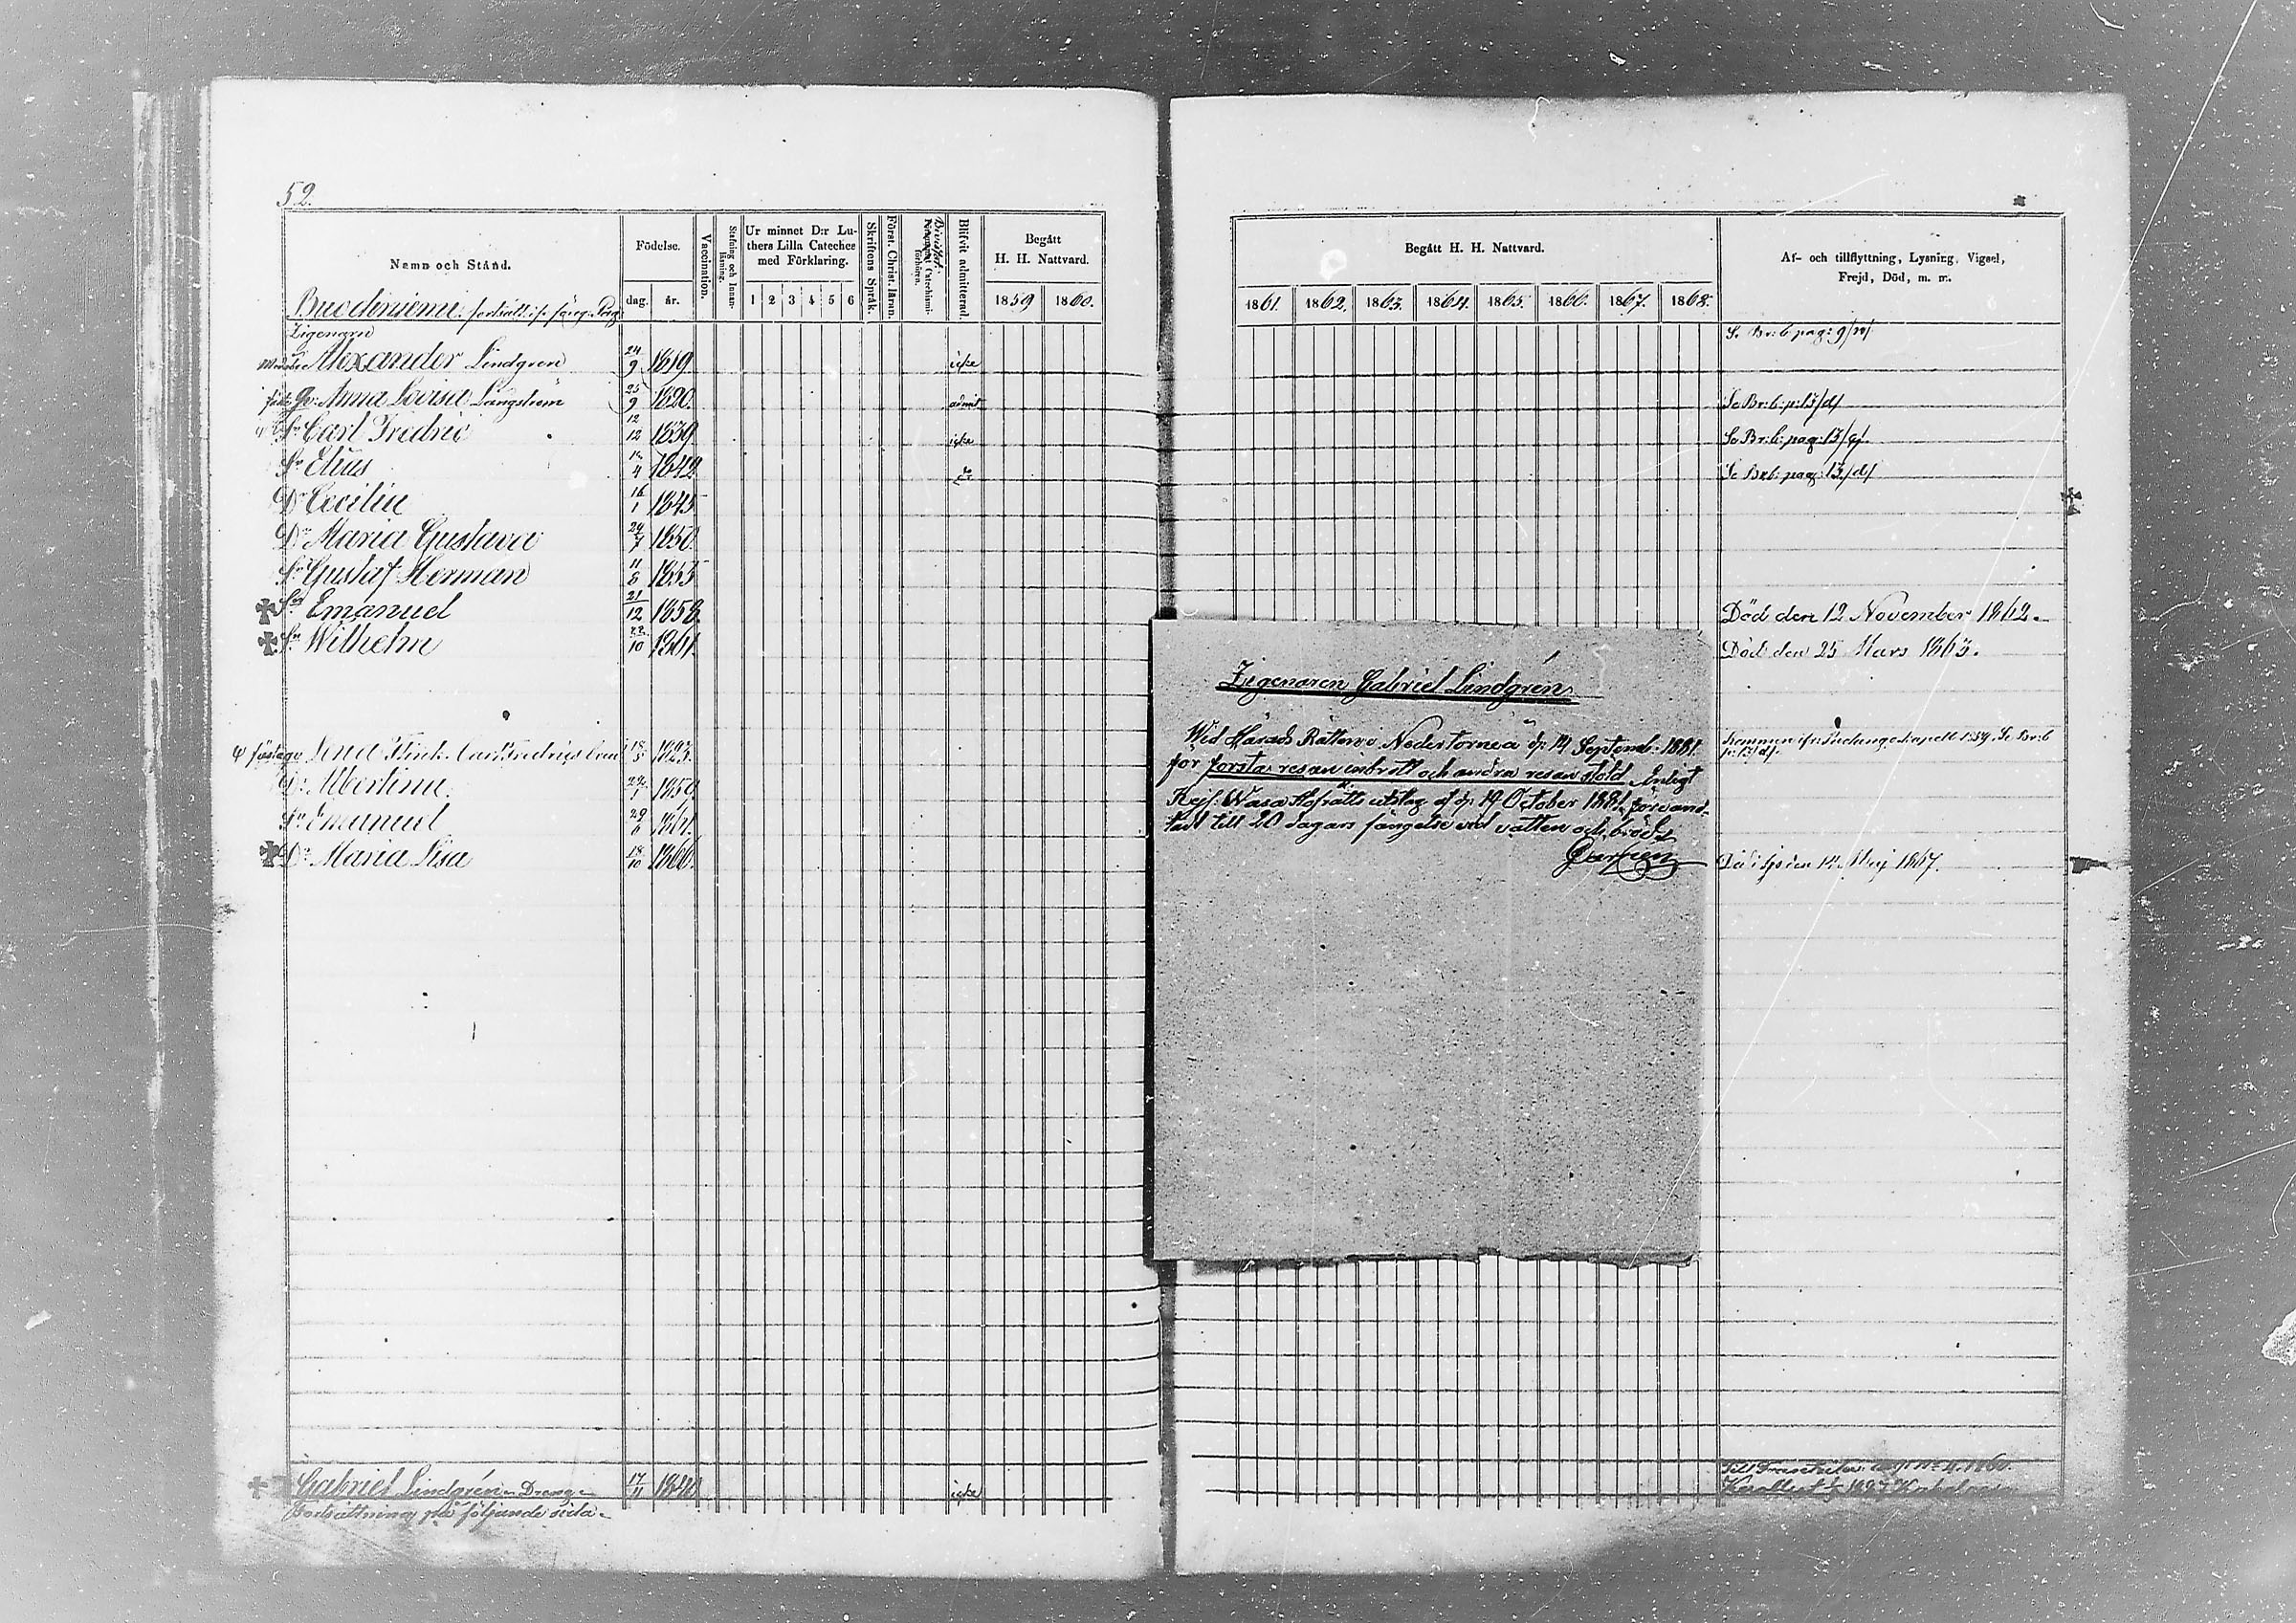 52.
Namn och Stånd.
Födelse.
dag. år.
Vaccination.
Stafning och Innan-läsning.
Ur minnet D:r Lu-
thers Lilla Cateches
med Förklaring.
1 2 3 4 5 6
Skriftens Språk.
Först. Christ. läran.
Catechismi-förhören.
Blifvit admitterad.
Begått
H. H. Nattvard.
1859 1860.
Zigenaren
Alexander Lindgren 24/9 1819. icke
Anna Lovisa Långström 25/9 1820. admit
Sn Carl Fredric 12/12 1839 icke
Sn Elias 4 1842 do
Dr Cecilia 16/1 1845
Dr Maria Gustava 24/7 1850.
Sn Gustaf Herman 11/8 1855
Sn Emanuel 21/12 1858.
Sn Wilhelm 22/10 1861.
Lena 18/5 1823.
Dr Albertina. 1 1859
Sn Emanuel 29/6 1861.
Dr Maria Lisa 18/10 1866.
Gabriel Lindgrén Dreng 17/11 1840 icke
Fortsättning på följande sida.
Begått H. H. Nattvard.
1861. 1862. 1863. 1864. 1865. 1866. 1867. 1868.
Af- och tillflyttning, Lysning, Vigsel,
Frejd, Död, m. m.
Se Br: b: pag: 9/
Se Br: b: p: 13/d/
Se Br: b: pag: 13/
Se Br: b: pag: 13/d/
Död den 12 November 1862.
Död den 25 Mars 1863.
Zigenaren Gabriel Lindgrén
Wid Härads Rätten i Nedertorneå d: 14 Septemb: 1881
för första resan inbrott och andra resan stöld. Enligt
Kejs: Wasa Hofrätts utslag af d: 19 October 1881 förvand-
ladt till 20 dagars fängelse vid vatten och bröd.
Död den 14 Maj 1867.